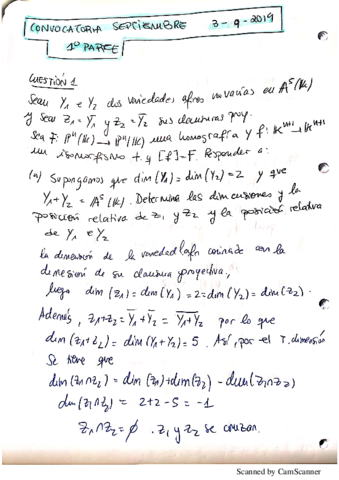 CONVOCATORIA SEPTIEMBRE 3-9-2019
1º PARTE
CUESTIÓN 1
Sean Y₁ e Y₂ dos variedades afines en 𝔸⁵(𝕜)
y sean Z₁ = Ȳ₁ y Z₂ = Ȳ₂ sus clausuras proy.
Sea F: ℙⁿ(𝕜) → ℙⁿ(𝕜) una homografía y f: 𝕜ⁿ⁺¹ → 𝕜ⁿ⁺¹
un isomorfismo t.q [f] = F. Responder a:
(a) Supongamos que dim(Y₁) = dim(Y₂) = 2 y que
Y₁ + Y₂ = 𝔸⁵(𝕜). Determine las dimensiones y la
posición relativa de Z₁ y Z₂ y la posición relativa
de Y₁ e Y₂
La dimensión de la variedad afín coincide con la
dimensión de su clausura proyectiva,
luego dim(Z₁) = dim(Y₁) = 2 = dim(Y₂) = dim(Z₂).
Además, Z₁+Z₂ = Ȳ₁ + Ȳ₂ = \overline{Y₁+Y₂} por lo que
dim(Z₁+Z₂) = dim(Y₁+Y₂) = 5. Así, por el T. dimensión
Se tiene que
dim(Z₁∩Z₂) = dim(Z₁) + dim(Z₂) - dim(Z₁∩Z₂)
dim(Z₁∩Z₂) = 2+2-5 = -1
Z₁∩Z₂ = ∅. Z₁ y Z₂ se cruzan.
Scanned by CamScanner